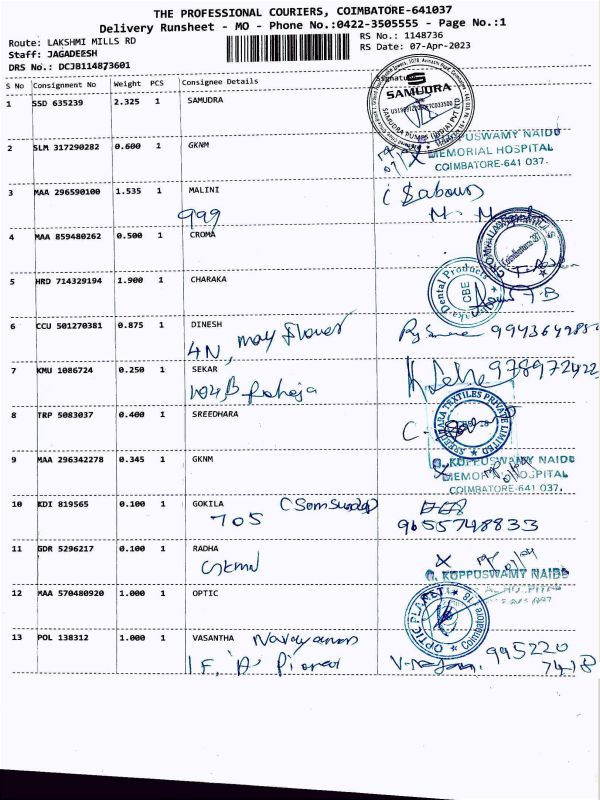 THE PROFESSIONAL COURIERS, COIMBATORE-641037
Delivery Runsheet - MO - Phone No.:0422-3505555 - Page No.:1
Route: LAKSHMI MILLS RD
RS No.: 1148736
Staff: JAGADEESH
RS Date: 07-Apr-2023
DRS No.: DCJB114873601
S No Consignment No Weight PCS Consignee Details Signature
1 SSD 635239 2.325 1 SAMUDRA
SAMUDRA
2 SLM 317290282 0.600 1 GKNM
KUPPUSWAMY NAIDU
MEMORIAL HOSPITAL
COIMBATORE-641 037.
3 MAA 296590100 1.535 1 MALINI
999
4 MAA 859480262 0.500 1 CROMA
5 HRD 714329194 1.900 1 CHARAKA
Dental Products
CBE
6 CCU 501270381 0.875 1 DINESH
4N, may flower
7 KMU 1086724 0.250 1 SEKAR
104 B Raheja
8 TRP 5083037 0.400 1 SREEDHARA
SREEDHARA TEXTILES PRIVATE LIMITED
9 MAA 296342278 0.345 1 GKNM
G. KUPPUSWAMY NAIDU
MEMORIAL HOSPITAL
COIMBATORE-641 037.
10 KDI 819565 0.100 1 GOKILA
705
9655748833
11 GDR 5296217 0.100 1 RADHA
Gknm
G. KUPPUSWAMY NAIDU
12 MAA 570480920 1.000 1 OPTIC
OPTIC PLANET
13 POL 138312 1.000 1 VASANTHA Narayanan
1F, 'A'
995220
7418